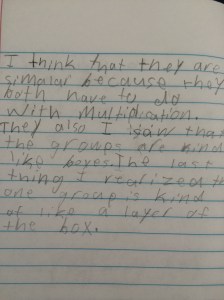 I think that they are
simalar because they
both have to do
with multidication.
They also I saw that
the groups are kind
like boxes. The last
thing I realized
one group is kind
of like a layer of
the box.